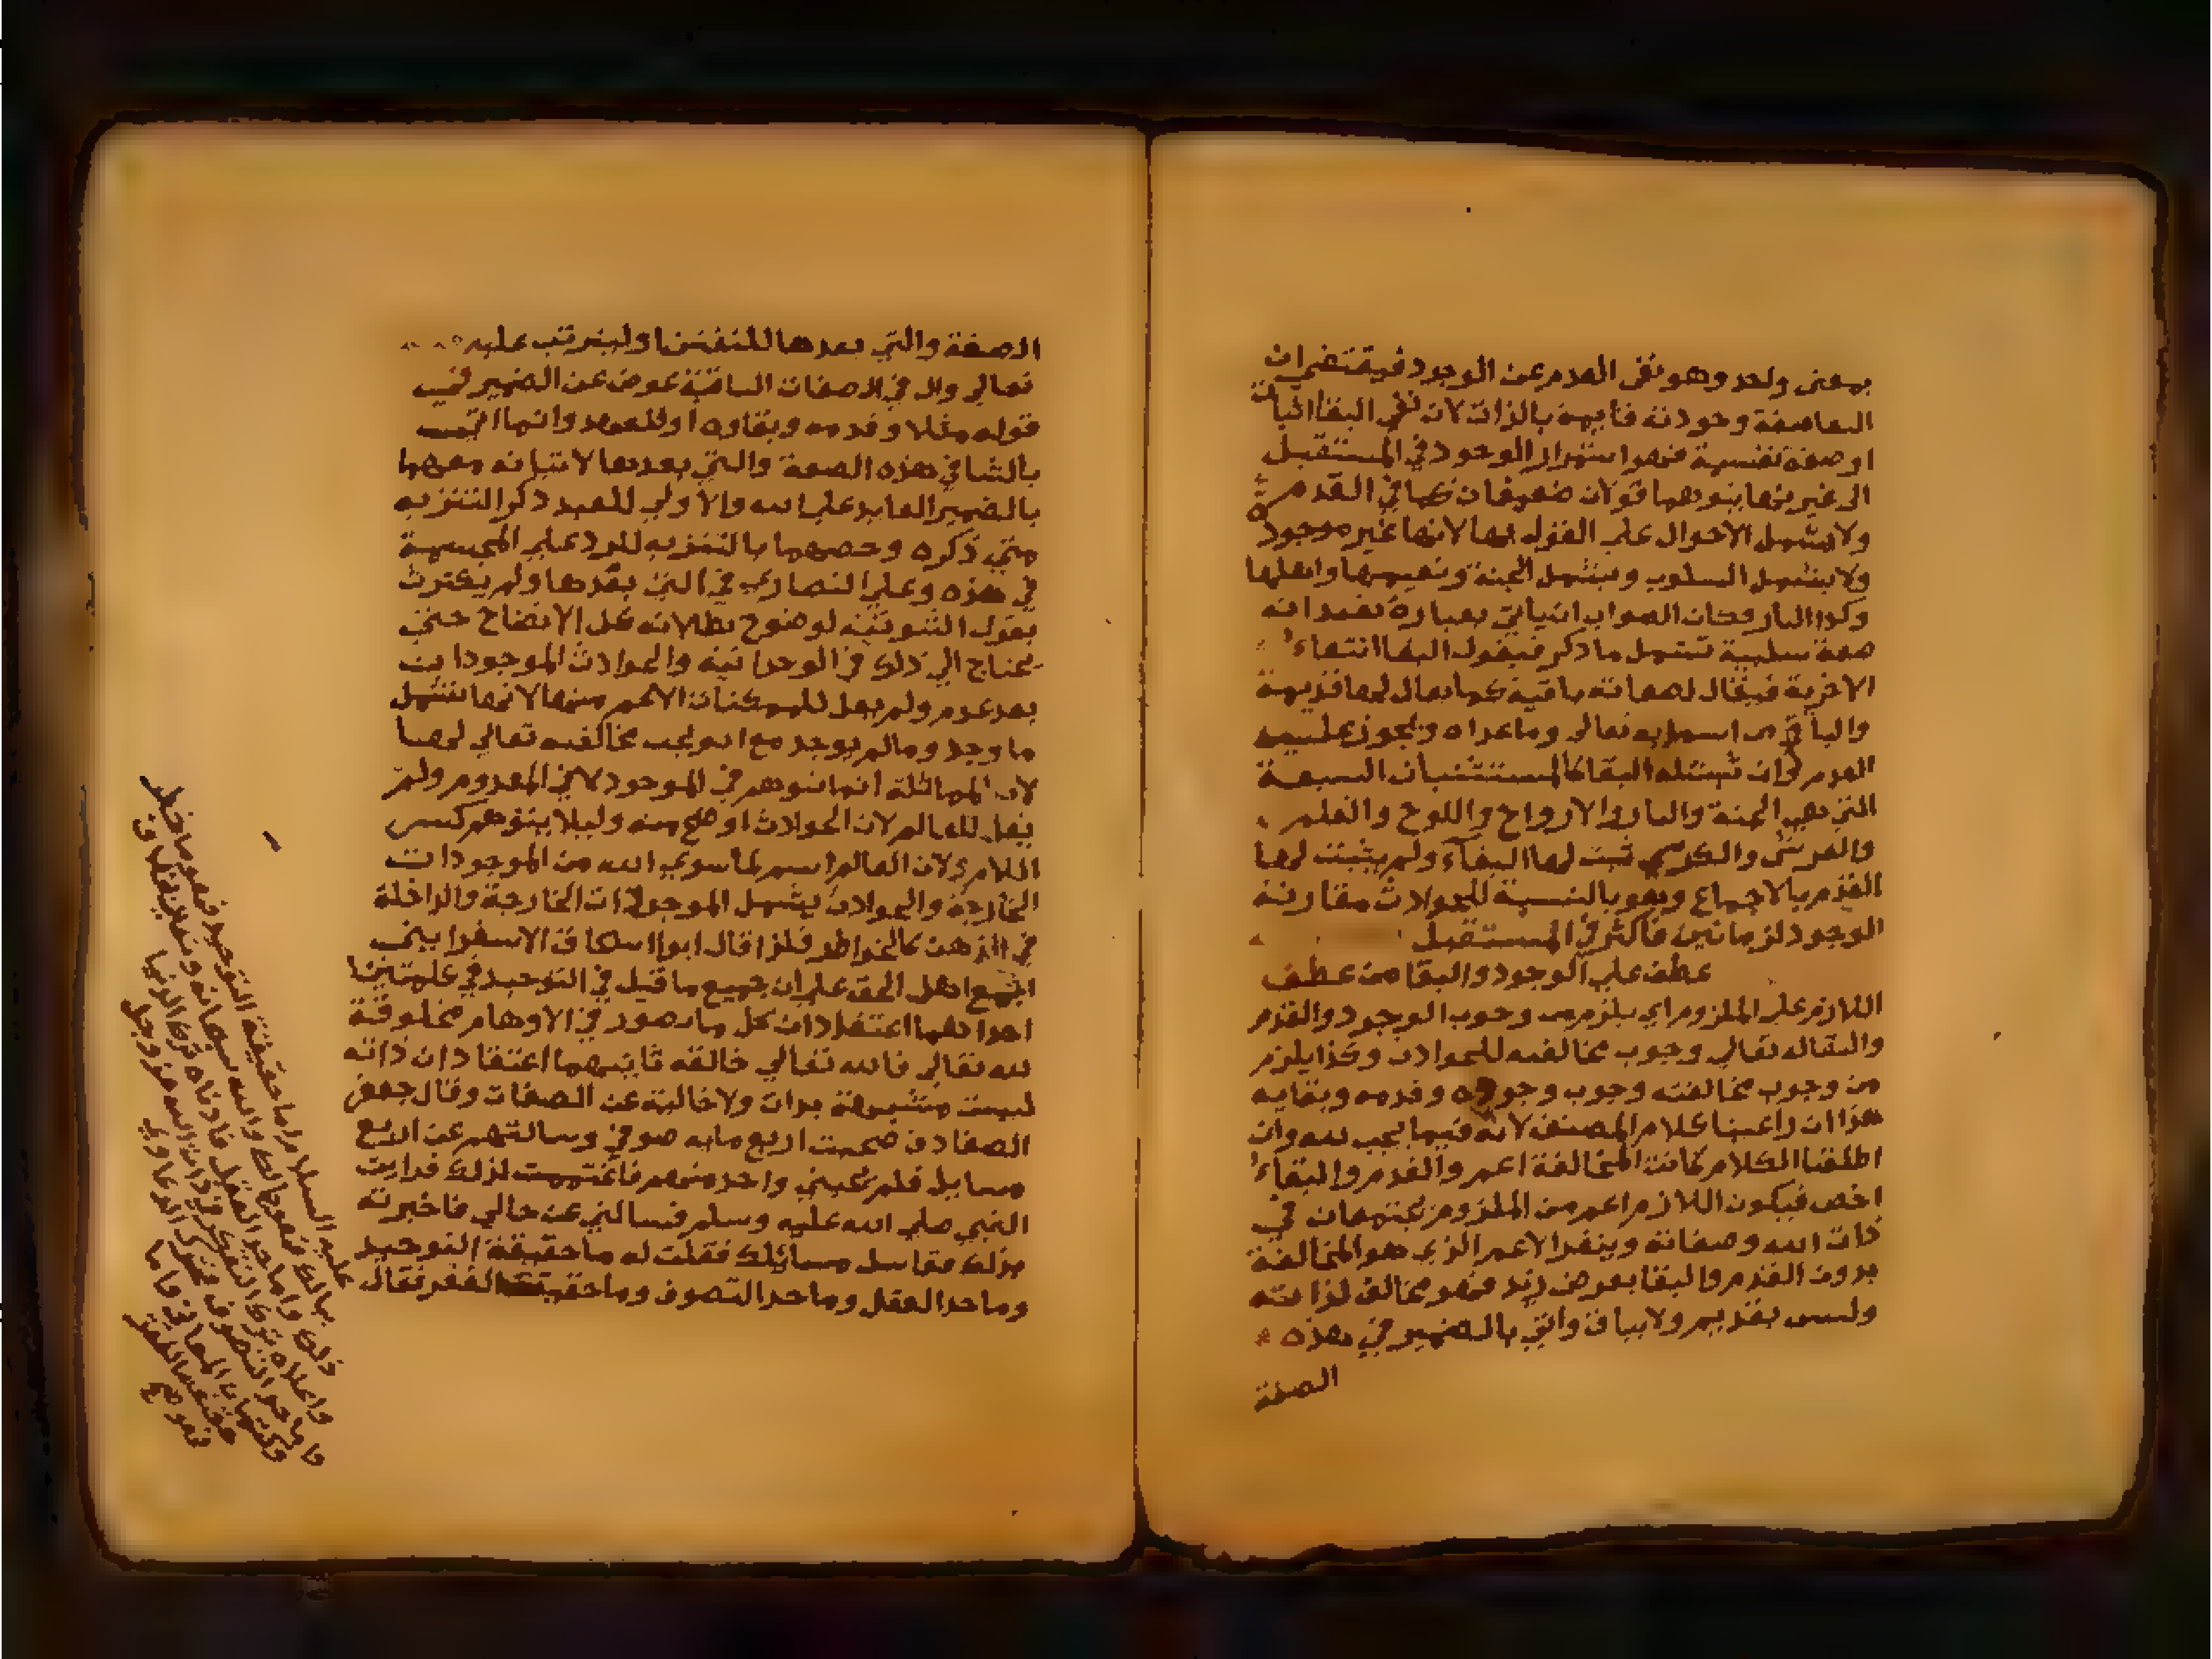 بمعنى واحد وهو نفى العدم عن الوجود فيقتضى ان
البقا صفة وجودية قايمة بالذات لان نفي البقا اثبات
او صفة نفسية فهو استمرار الوجود في المستقبل
الى غير نهاية وهما قولان ضعيفان كما في القدم
ولا يشمل الاحوال على القول بها لانها غير موجودة
ولا يشمل السلوب ويشمل الجنة ونعيمها واهلها
وكذا النار فكان الصواب ان ياتي بعبارة تفيد انه
صفة سلبية تشمل ما ذكر فيقول البقا انتفاء
الاخرية فيقال لصفاته باقية كما يقال لها قديمة
والباقي من اسمايه تعالى وما عداه ويجوز عليه
العدم وان البقا كالمستثنيات السبعة
التي هي الجنة والنار والارواح واللوح والقلم
والعرش والكرسي ثبت لها البقاء ولم يثبت لها
القدم بالاجماع وهو بالنسبة للحوادث مقارنة
الوجود لزمانين فاكثر في المستقبل
عطف على الوجود والبقا من عطف
اللازم على الملزوم اي يلزم من وجوب الوجود والقدم
والبقا له تعالي وجوب مخالفته للحوادث وكذا يلزم
من وجوب مخالفته وجوب وجوده وقدمه وبقايه
هذا ان راعينا كلام المصنف لانه فيما يجب لله وان
اطلقنا الكلام كانت المخالفة اعم والقدم والبقاء
اخص فيكون اللازم اعم من الملزوم يجتمعان في
ذات الله وصفاته وينفرد الاعم الذي هو المخالفة
بدون القدم والبقا بعرض زيد فهو مخالف لذاته
وليس بقديم ولا بباق واتي بالضمير في هذه
الصفة
الصفة والتي بعدها للتفنن او ليترتب عليه
تعالي وال في الصفات السابقة عوض عن الضمير في
قوله مثلا وقدمه وبقاوه او للعهد وانما اتي
بالتا في هذه الصفة والتي بعدها لاتيانه معهما
بالضمير العايد على الله والاولي للعبد ذكر التنزيه
متي ذكره وخصهما بالتنزيه للرد على المجسمة
في هذه وعلي النصاري في التي بعدها ولم يكترث
بقول الثنوتية لوضوح بطلانه كل الاتضاح حتى
يحتاج الي ذلك في الوحدانية والحوادث الموجودات
بعد عدم ولم يقل للممكنات الاعم منها لانها تشمل
ما وجد وما لم يوجد مع انه يجب مخالفته تعالي لها
لان المماثلة انما تتوهم في الموجود لا في المعدوم ولم
يقل للعالم لان الحوادث اوضح منه وليلا يتوهم كسر
اللام ولان العالم اسم لما سوي الله من الموجودات
الخارجة والحوادث يشمل الموجودات الخارجة والداخلة
في الذهن كالخواطر فلذا قال ابو اسحاق الاسفرايني
اجمع اهل الحق على ان جميع ما قيل في التوحيد في كلمتين
احداهما اعتقاد ان كل ما تصور في الاوهام مخلوقة
لله تعالي فالله تعالي خالقه ثانيهما اعتقاد ان ذاته
ليست مشبهة بذات ولا خالية عن الصفات وقال جعفر
الصادق صحبت اربع مايه صوفي وسالتهم عن اربع
مسايل فلم يجبني واحد منهم فاغتممت لذلك فرايت
النبي صلى الله عليه وسلم فسالني عن حالي فاخبرته
بذلك فقال سل مسائلك فقلت له ما حقيقة التوحيد
وما حد العقل وما حد التصوف وما حقيقة الفقر فقال
عليه السلام اما حقيقة التوحيد فهو ما خطر
ببالك فهو هالك والله سبحانه وتعالي بخلاف
ذلك واما حد العقل فادناه ترك الدنيا
واعلاه ترك التفكر في ذات الله عز وجل
واما حد التصوف فترك الدعاوي
وكتمان المعاني واما
حقيقة الفقر
فهو